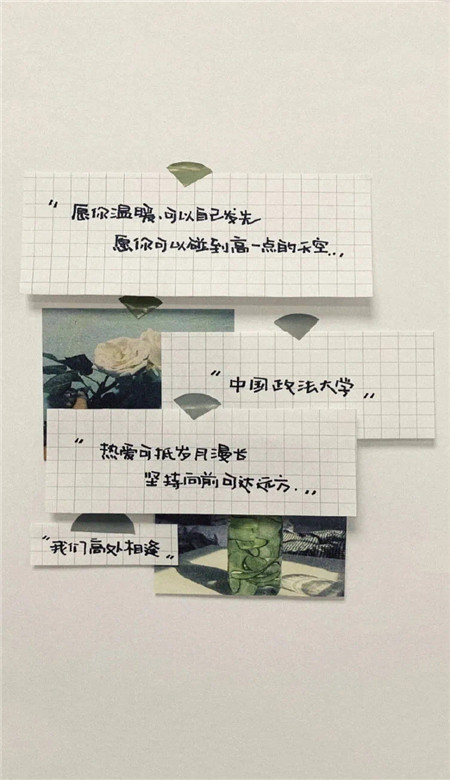 “愿你温暖.可以自己发光
愿你可以碰到高一点的天空..”
“中国政法大学”
“热爱可抵岁月漫长
坚持向前可达远方..”
“我们高处相逢”